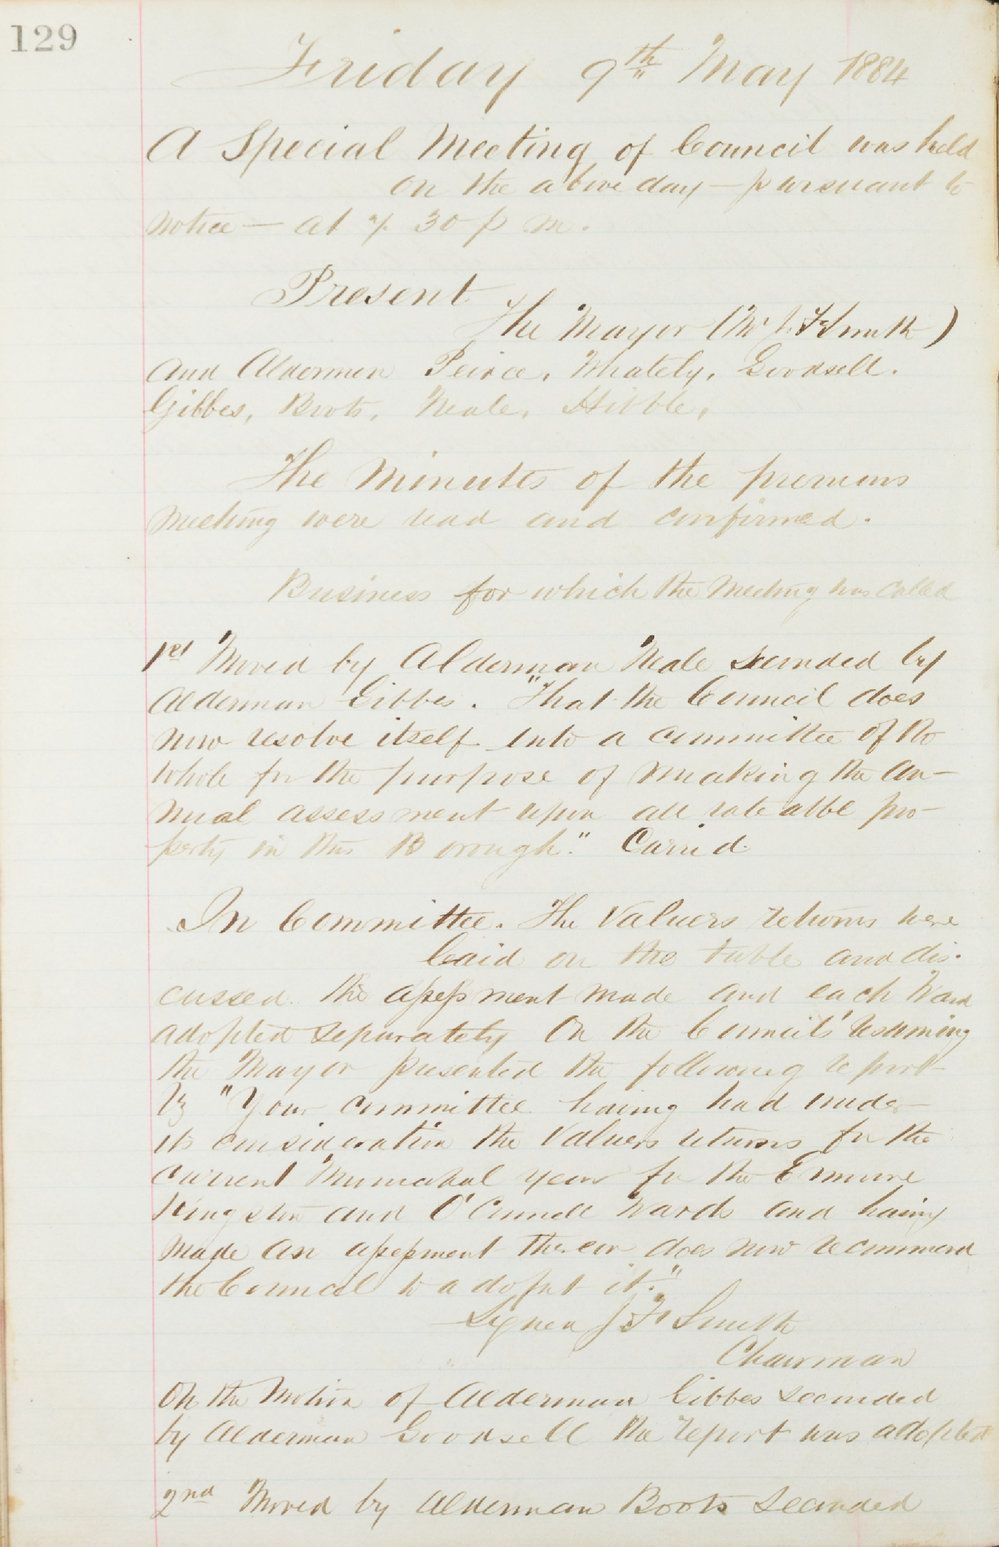 129
Friday 9th May 1884
A Special Meeting of Council was held
on the above day — pursuant to
notice — at 7. 30 p m.
Present
The Mayor (Mr J. F. Smith)
and Aldermen Peirce, Whately, Goodsell.
Gibbes, Boots, Neale, Hibble,
The Minutes of the previous
meeting were read and confirmed.
Business for which the Meeting was called
1st Moved by Alderman Neale seconded by
Alderman Gibbes. "That the Council does
now resolve itself into a committee of the
whole for the purpose of making the an-
nual assessment upon all rateable pro-
perty in this Borough." Carried.
In Committee. The Valuers returns were
laid on the table and dis-
cussed. the assessment made and each Ward
adopted separately On the Council's resuming
the Mayor presented the following report
Viz "Your committee having had under
its consideration the Valuers returns for the
current Municipal year for the Enmore
Kingston and O'Connell Wards and having
made an assessment thereon does now recommend
the Council to adopt it."
Signed J F Smith
Chairman
On the Motion of Alderman Gibbes seconded
by Alderman Goodsell the report was adopted
2nd Moved by Alderman Boots Seconded